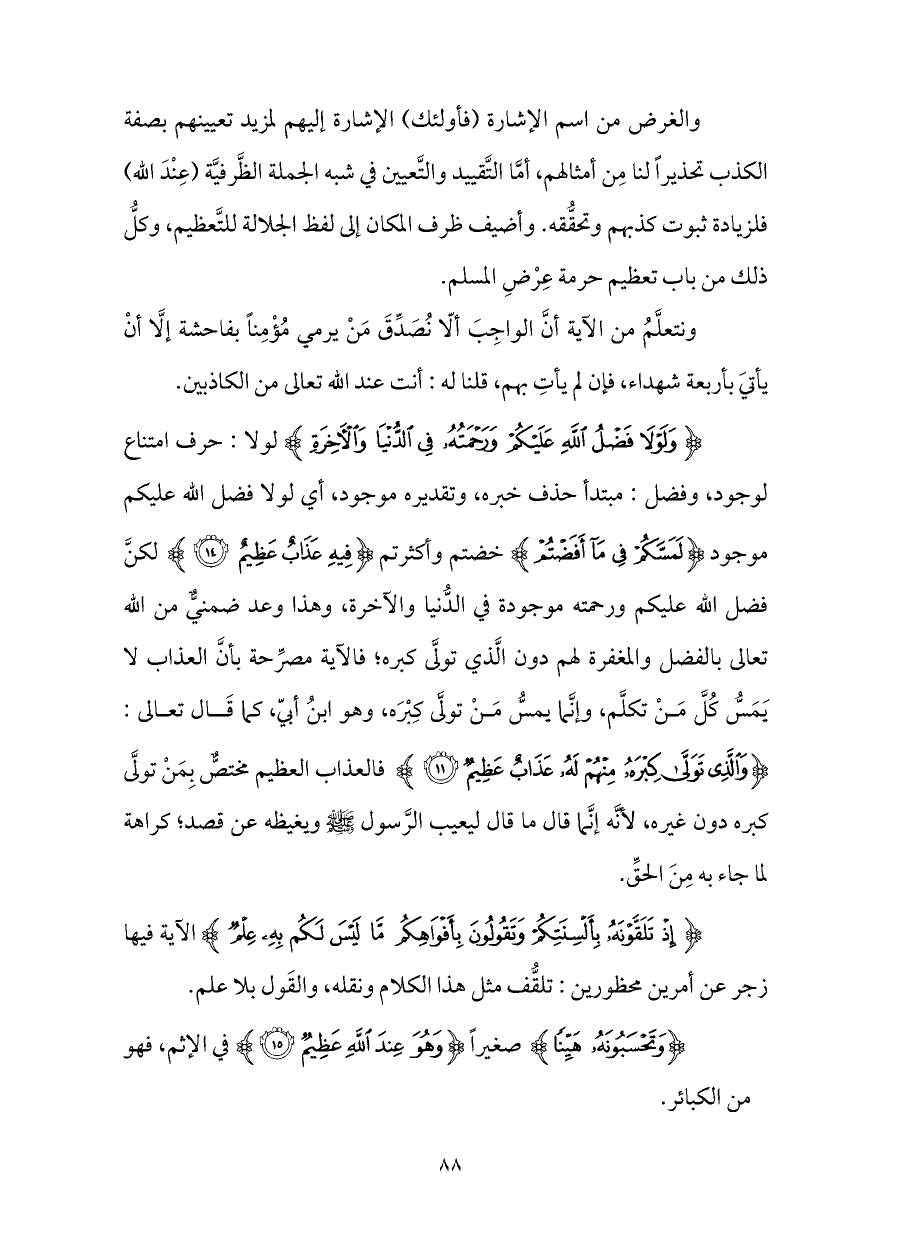 والغرض من اسم الإشارة (فأولئك) الإشارة إليهم لمزيد تعيينهم بصفة
الكذب تحذيراً لنا مِن أمثالهم، أمَّا التَّقييد والتَّعيين في شبه الجملة الظَّرفيَّة (عِنْدَ الله)
فلزيادة ثبوت كذبهم وتحقُّقه. وأضيف ظرف المكان إلى لفظ الجلالة للتَّعظيم، وكلُّ
ذلك من باب تعظيم حرمة عِرْضِ المسلم.
ونتعلَّمُ من الآية أنَّ الواجِبَ ألّا نُصَدِّقَ مَنْ يرمي مُؤْمِناً بفاحشة إلَّا أنْ
يأتيَ بأربعة شهداء، فإن لم يأتِ بهم، قلنا له : أنت عند الله تعالى من الكاذبين.
﴿ وَلَوۡلَا فَضۡلُ ٱللَّهِ عَلَيۡكُمۡ وَرَحۡمَتُهُۥ فِي ٱلدُّنۡيَا وَٱلۡأٓخِرَةِ ﴾ لولا : حرف امتناع
لوجود، وفضل : مبتدأ حذف خبره، وتقديره موجود، أي لولا فضل الله عليكم
موجود ﴿لَمَسَّكُمۡ فِي مَآ أَفَضۡتُمۡ﴾ خضتم وأكثرتم ﴿فِيهِ عَذَابٌ عَظِيمٌ ١٤﴾ لكنَّ
فضل الله عليكم ورحمته موجودة في الدُّنيا والآخرة، وهذا وعد ضمنيٌّ من الله
تعالى بالفضل والمغفرة لهم دون الَّذي تولَّى كبره؛ فالآية مصرِّحة بأنَّ العذاب لا
يَمَسُّ كُلَّ مَـنْ تكلَّم، وإنَّما يمسُّ مَـنْ تولَّى كِبْرَه، وهو ابنُ أبيّ، كما قَـــال تعــالى :
﴿وَٱلَّذِي تَوَلَّىٰ كِبۡرَهُۥ مِنۡهُمۡ لَهُۥ عَذَابٌ عَظِيمٌ ١١﴾ فالعذاب العظيم مختصٌّ بِمَنْ تولَّى
كبره دون غيره، لأنَّه إنَّما قال ما قال ليعيب الرَّسول ﷺ ويغيظه عن قصد؛ كراهة
لما جاء به مِنَ الحقِّ.
﴿ إِذۡ تَلَقَّوۡنَهُۥ بِأَلۡسِنَتِكُمۡ وَتَقُولُونَ بِأَفۡوَاهِكُم مَّا لَيۡسَ لَكُم بِهِۦ عِلۡمٞ ﴾ الآية فيها
زجر عن أمرين محظورين : تلقُّف مثل هذا الكلام ونقله، والقَول بلا علم.
﴿وَتَحۡسَبُونَهُۥ هَيِّنٗا﴾ صغيراً ﴿وَهُوَ عِندَ ٱللَّهِ عَظِيمٞ ١٥﴾ في الإثم، فهو
من الكبائر.
٨٨